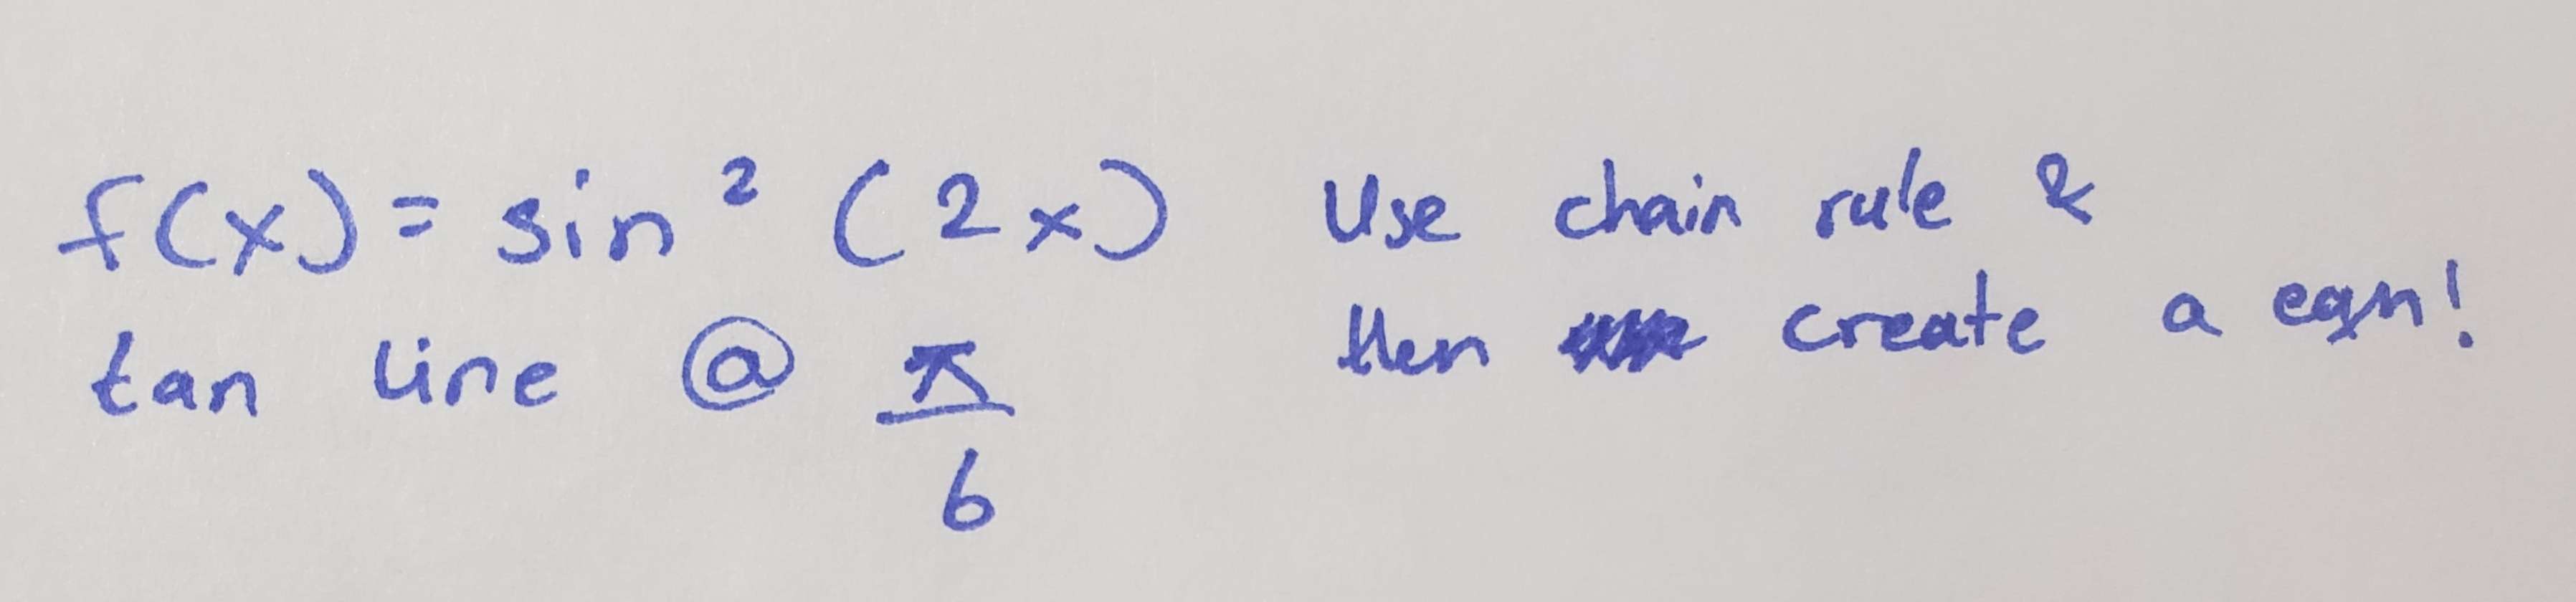 f(x) = sin² (2x)
tan line @ π/6
Use chain rule &
then create a eqn!